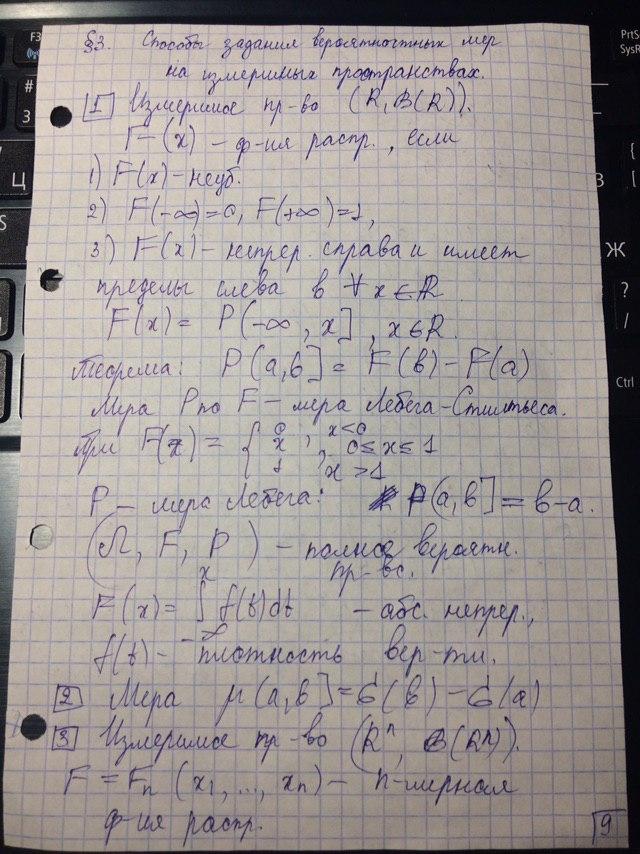 §3. Способы задания вероятностных мер
на измеримых пространствах.
1 Измеримое пр-во (R, B(R)).
F = (x) – ф-ия распр., если
1) F(x) – неуб.
2) F(-∞) = 0, F(+∞) = 1,
3) F(x) – непрер. справа и имеет
пределы слева в ∀ x ∈ R
F(x) = P(-∞, x], x ∈ R.
Теорема: P(a, b] = F(b) – F(a)
Мера P по F – мера Лебега-Стилтьеса.
При F(x) = { 0, x<0
x, 0 ≤ x ≤ 1
1, x > 1
P – мера Лебега: P(a, b] = b-a.
(Ω, F, P) – полное вероятн.
пр-во.
F(x) = ∫_{-∞}^{x} f(t)dt – абс. непрер.,
f(t) – плотность вер-ти.
2 Мера μ(a, b] = G(b) – G(a)
3 Измеримое пр-во (Rⁿ, B(Rⁿ)).
F = Fₙ (x₁, ..., xₙ) – n-мерная
ф-ия распр.
9
F3
#
3
Ц
S
PrtS
SysR
{
[
З
Ж
?
/
Ctrl